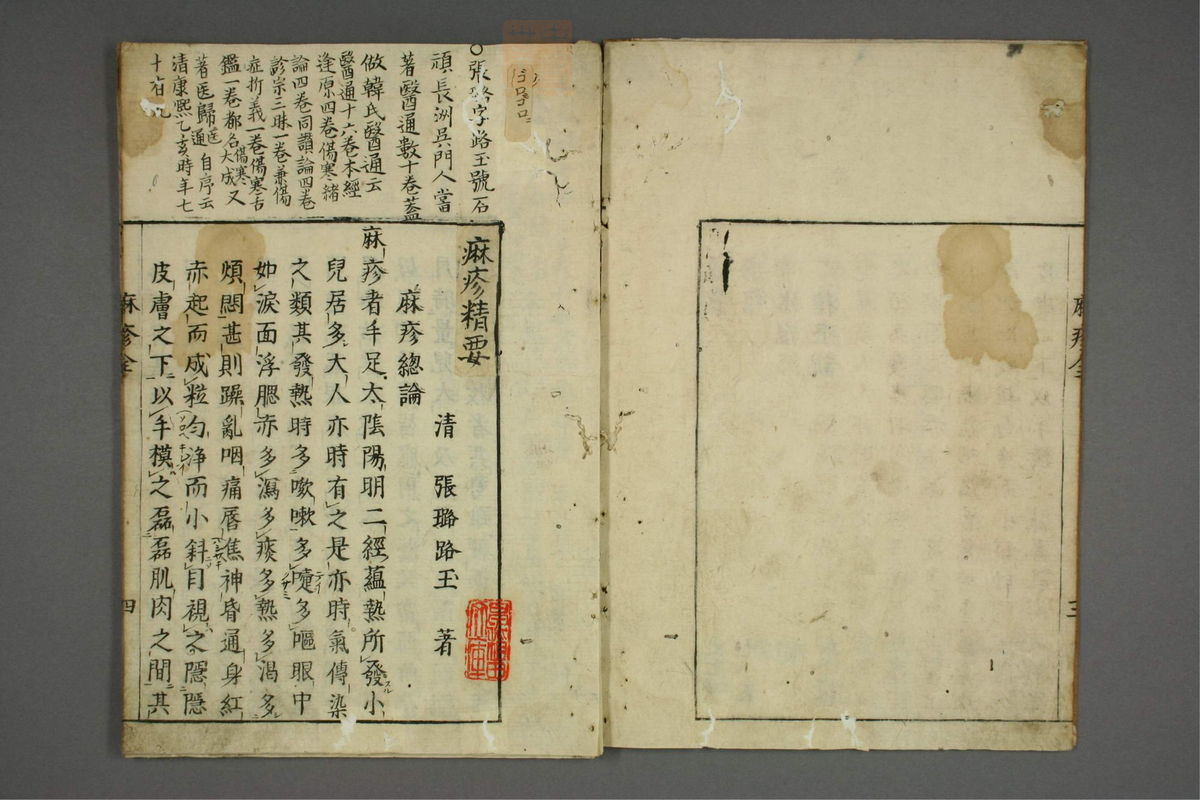 ○張路字路玉號石
頑長洲吳門人當
著醫通數十卷蓋
倣韓氏醫通云
醫通十六卷本經
逢原四卷傷寒緒
論四卷同讚論四卷
診宗三昧一卷兼傷
症析義一卷傷寒舌
鑑一卷都名傷寒大成又
著医歸医通自序云
清康熙乙亥時年七
十有九
麻疹精要
清 張璐路玉 著
麻疹總論
麻疹者手足太陰陽明二經蘊熱所發小
兒居多大人亦時有之是亦時氣傳染
之類其發熱時多嗽嗽多嚏多嘔眼中
如淚面浮腮赤多瀉多痰多熱多渴多
煩悶甚則躁亂咽痛唇焦神昏通身紅
赤起而成粒勻淨而小斜目視之隱隱
皮膚之下以手模之磊磊肌肉之間其
麻疹全
四
麻疹全
三